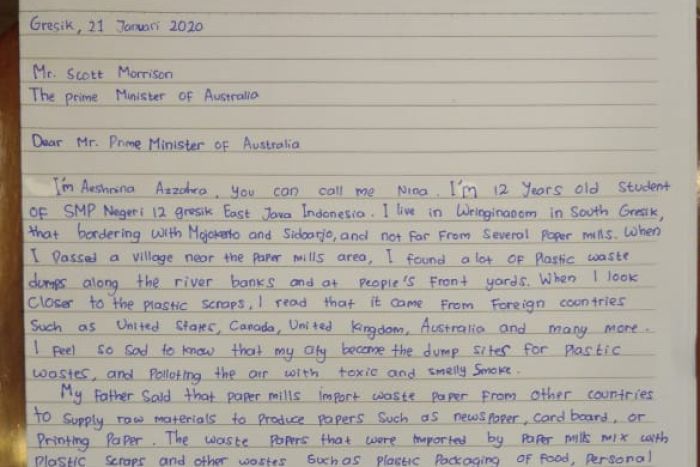 Gresik, 21 Januari 2020
Mr. Scott Morrison
The prime Minister of Australia
Dear Mr. Prime Minister of Australia
I'm Aeshnina Azzahra, you can call me Nina. I'm 12 Years old Student
of SMP Negeri 12 gresik East Java Indonesia. I live in Wringinanom in South Gresik,
that bordering with Mojokerto and Sidoarjo, and not far from Several Paper mills. When
I Passed a village near the paper mills area, I found a lot of Plastic waste
dumps along the river banks and at people's front yards. When I look
Closer to the plastic scraps, I read that it came from foreign countries
Such as United States, Canada, United Kingdom, Australia and many more.
I feel so sad to know that my city become the dump sites for Plastic
wastes, and Polloting the air with toxic and smelly Smoke.
My Father Said that paper mills import waste paper from other countries
to supply raw materials to produce papers such as newspaper, card board, or
Printing Paper. The waste papers that were imported by paper mills mix with
Plastic Scraps and other wastes such as plastic packaging of food, Personal